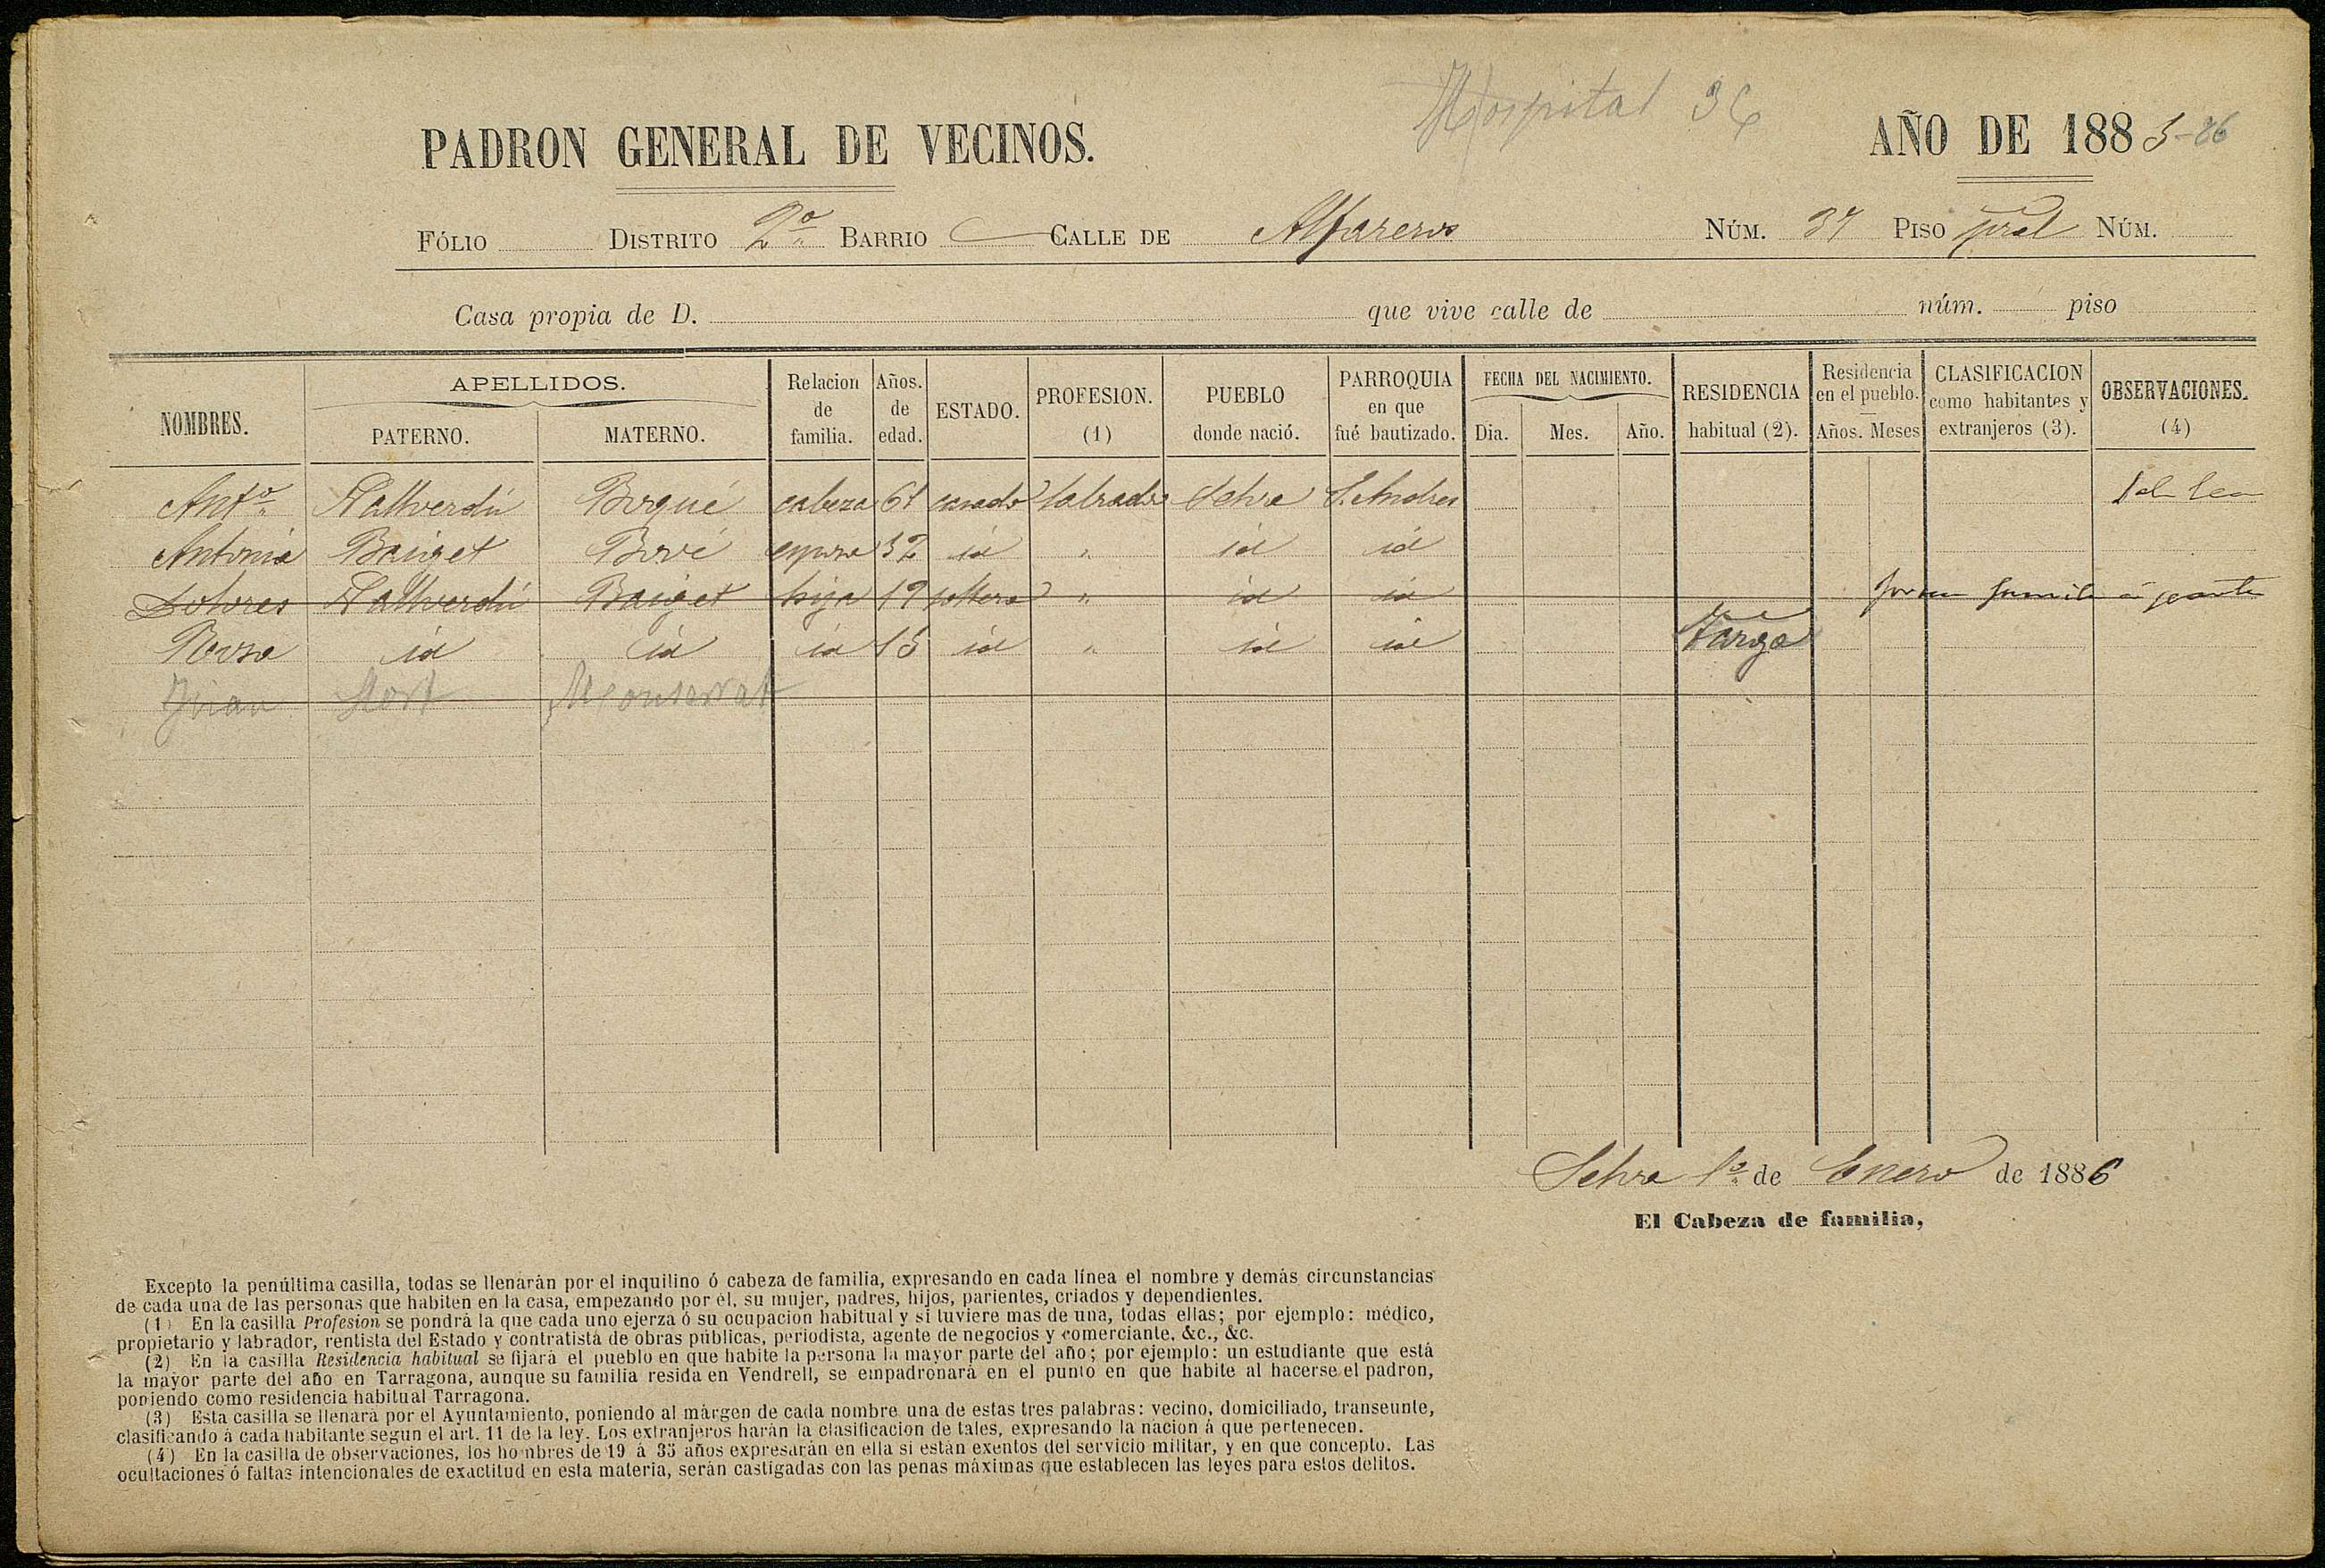 Hospital 36
PADRON GENERAL DE VECINOS. AÑO DE 1885-86
FÓLIO DISTRITO 2º BARRIO CALLE DE Alfareros NÚM. 37 PISO pral NÚM.
Casa propia de D. que vive calle de núm. piso
NOMBRES. APELLIDOS. PATERNO. MATERNO. Relacion de familia. Años. de edad. ESTADO. PROFESION. (1) PUEBLO donde nació. PARROQUIA en que fué bautizado. FECHA DEL NACIMIENTO. Dia. Mes. Año. RESIDENCIA habitual (2). Residencia en el pueblo. Años. Meses CLASIFICACION como habitantes y extranjeros (3). OBSERVACIONES. (4)
Antº Vallverdú Borqué cabeza 61 casado labrador Selva S. Andres
Antonia Baiget Bové esposa 52 id " id id
Dolores Vallverdú Baiget hija 19 soltera " id id forma familia á parte
Rosa id id id 15 id " id id
Juan Mort Monserrat
Selva 1º de Enero de 1886
El Cabeza de familia,
Excepto la penúltima casilla, todas se llenarán por el inquilino ó cabeza de familia, expresando en cada línea el nombre y demás circunstancias
de cada una de las personas que habiten en la casa, empezando por él, su mujer, padres, hijos, parientes, criados y dependientes.
(1) En la casilla Profesion se pondrá la que cada uno ejerza ó su ocupacion habitual y si tuviere mas de una, todas ellas; por ejemplo: médico,
propietario y labrador, rentista del Estado y contratista de obras públicas, periodista, agente de negocios y comerciante, &c., &c.
(2) En la casilla Residencia habitual se fijará el pueblo en que habite la persona la mayor parte del año; por ejemplo: un estudiante que está
la mayor parte del año en Tarragona, aunque su familia resida en Vendrell, se empadronará en el punto en que habite al hacerse el padron,
poniendo como residencia habitual Tarragona.
(3) Esta casilla se llenará por el Ayuntamiento, poniendo al márgen de cada nombre una de estas tres palabras: vecino, domiciliado, transeunte,
clasificando á cada habitante segun el art. 11 de la ley. Los extranjeros harán la clasificacion de tales, expresando la nacion á que pertenecen.
(4) En la casilla de observaciones, los hombres de 19 á 35 años expresarán en ella si están exentos del servicio militar, y en que concepto. Las
ocultaciones ó faltas intencionales de exactitud en esta materia, serán castigadas con las penas máximas que establecen las leyes para estos delitos.